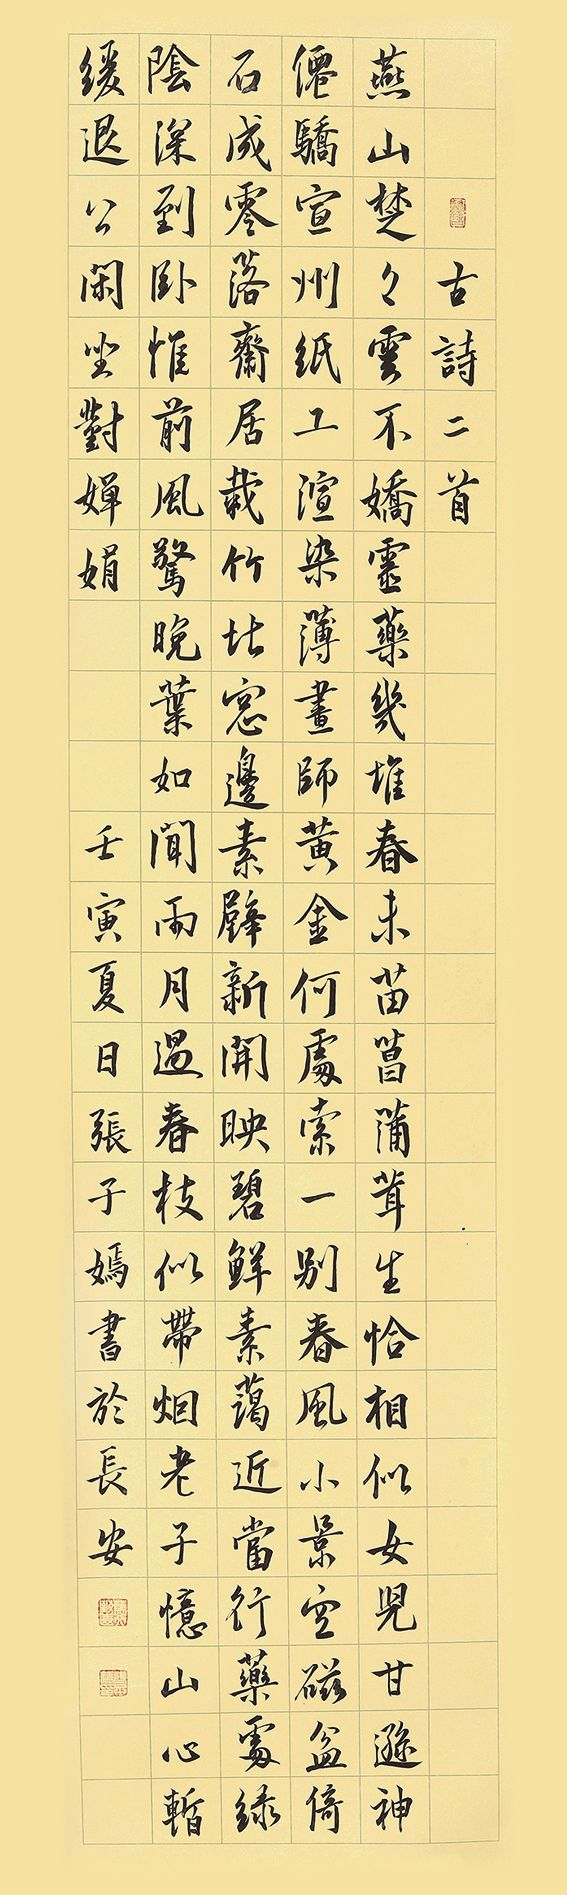 古詩二首
燕山楚々雲不嬌靈藥幾堆春未苗菖蒲茸生恰相似女児甘遜神
僊驕宣州紙工渲染薄畫師黄金何處索一别春風小景空磁盆倚
石成零落齋居栽竹北窓邊素壁新開映碧鮮素藹近當行藥處緑
陰深到卧惟前風驚晚葉如聞雨月過春枝似帶烟老子憶山心暫
緩退公閑坐對嬋娟
壬寅夏日張子嫣書於長安